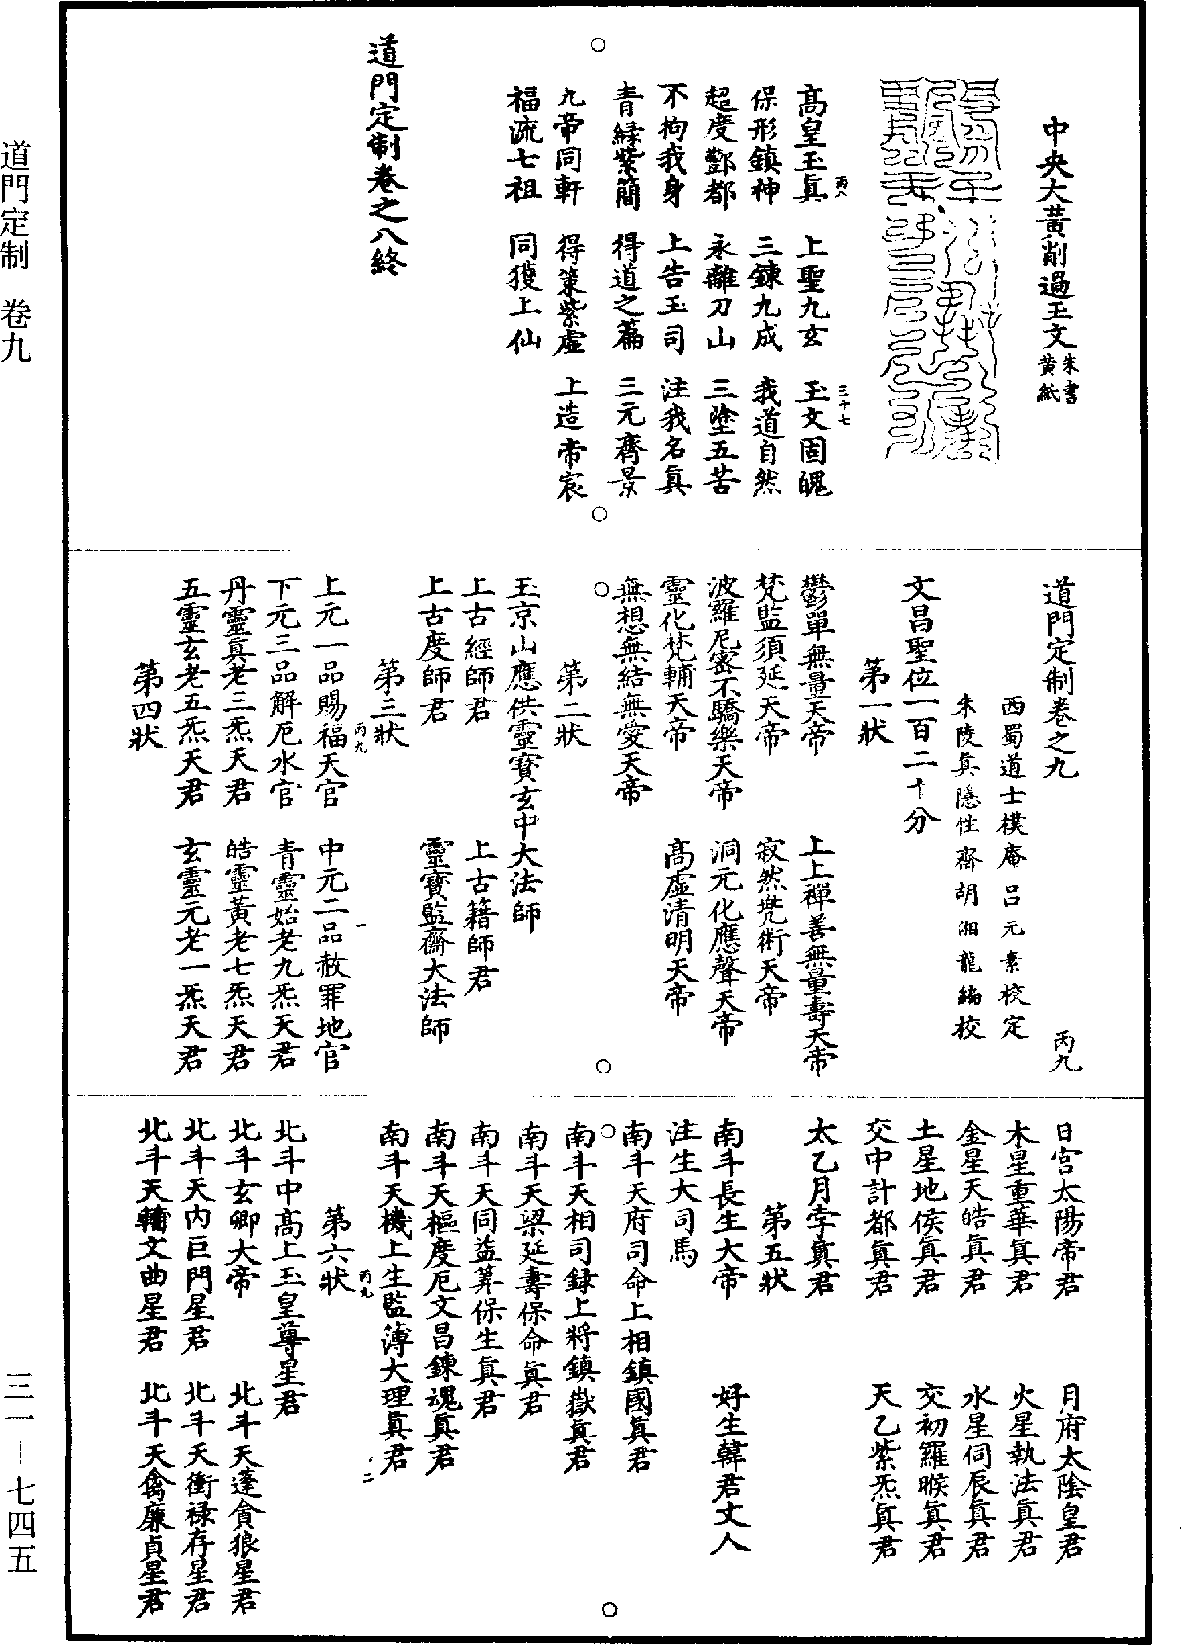 中央大黃削過玉文朱書黃紙
高皇玉眞 上聖九玄 玉文固魄
丙八 三十七
保形鎮神 三鍊九成 我道自然
超度酆都 永離刀山 三塗五苦
不拘我身 上告玉司 注我名眞
青緑紫簡 得道之篇 三元齊景
九帝同軒 得策紫虛 上造帝宸
福流七祖 同獲上仙
道門定制卷之八終
道門定制卷之九 丙九
西蜀道士樸庵呂元素校定
朱陵眞隱性齋胡湘龍編校
文昌聖位一百二十分
第一狀
鬱單無量天帝 上上禪善無量壽天帝
梵監須延天帝 寂然兜術天帝
波羅尼密不驕樂天帝 洞元化應聲天帝
靈化梵輔天帝 高虛清明天帝
無想無結無愛天帝
第二狀
玉京山應供靈寶玄中大法師
上古經師君 上古籍師君
上古度師君 靈寶監齋大法師
第三狀
丙九 一
上元一品賜福天官 中元二品赦罪地官
下元三品解厄水官 青靈始老九炁天君
丹靈真老三炁天君 皓靈黃老七炁天君
五靈玄老五炁天君 玄靈元老一炁天君
第四狀
日宮太陽帝君 月府太陰皇君
木星重華眞君 火星執法眞君
金星天皓眞君 水星伺辰眞君
土星地侯眞君 交初羅睺眞君
交中計都眞君 天乙紫炁眞君
太乙月孛眞君
第五狀
南斗長生大帝 好生韓君丈人
注生大司馬
南斗天府司命上相鎮國眞君
南斗天相司録上將鎮嶽眞君
南斗天梁延壽保命眞君
南斗天同益筭保生眞君
南斗天樞度厄文昌鍊魂眞君
南斗天機上生監簿大理眞君
丙九 二
第六狀
北斗中高上玉皇尊星君
北斗玄卿大帝 北斗天蓬貪狼星君
北斗天內巨門星君 北斗天衝祿存星君
北斗天輔文曲星君 北斗天禽廉貞星君
道門定制 卷九
三一－七四五